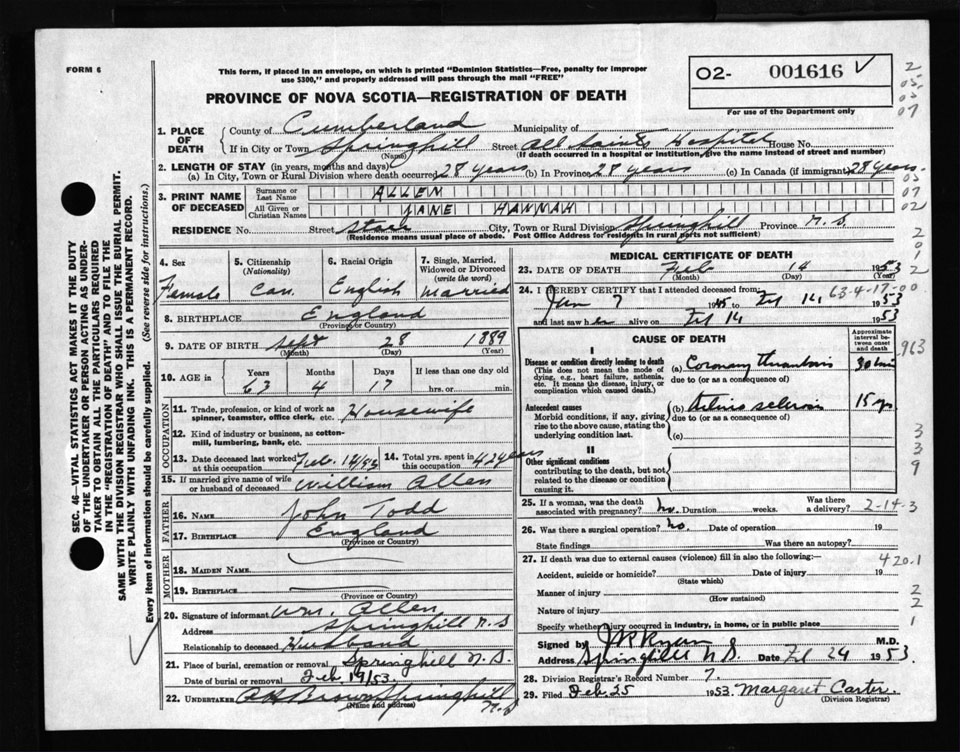 FORM 6
This form, if placed in an envelope, on which is printed "Dominion Statistics—Free, penalty for improper
use $300," and properly addressed will pass through the mail "FREE"
O2- 001616
For use of the Department only
PROVINCE OF NOVA SCOTIA—REGISTRATION OF DEATH
1. PLACE OF DEATH
County of Cumberland Municipality of
If in City or Town Springhill Street All Saints Hospital House No.
(Name) (If death occurred in a hospital or institution, give name instead of street and number)
2. LENGTH OF STAY (in years, months and days)
(a) In City, Town or Rural Division where death occurred 28 years (b) In Province 28 years (c) In Canada (if immigrant) 28 years
3. PRINT NAME OF DECEASED
Surname or Last Name ALLEN
All Given or Christian Names JANE HANNAH
RESIDENCE No. Street City, Town or Rural Division Springhill Province N.S.
(Residence means usual place of abode. Post Office Address for residents in rural parts not sufficient)
4. Sex
Female
5. Citizenship
(Nationality)
Can.
6. Racial Origin
English
7. Single, Married, Widowed or Divorced
(write the word)
Married
8. BIRTHPLACE England
(Province or Country)
9. DATE OF BIRTH Sept 28 1889
(Month) (Day) (Year)
10. AGE in
Years Months Days If less than one day old
63 4 17 hrs. or min.
OCCUPATION
11. Trade, profession, or kind of work as
spinner, teamster, office clerk, etc. Housewife
12. Kind of industry or business, as cotton-
mill, lumbering, bank, etc.
13. Date deceased last worked
at this occupation Feb. 14/53
14. Total yrs. spent in
this occupation 42 years
15. If married give name of wife
or husband of deceased William Allen
FATHER
16. NAME John Todd
17. BIRTHPLACE England
(Province or Country)
MOTHER
18. MAIDEN NAME
19. BIRTHPLACE
(Province or Country)
20. Signature of informant Wm. Allen
Address Springhill N.S
Relationship to deceased Husband
21. Place of burial, cremation or removal Springhill N.S.
Date of burial or removal Feb 19/53.
22. UNDERTAKER Brown Springhill N.S
(Name and address)
MEDICAL CERTIFICATE OF DEATH
23. DATE OF DEATH Feb 14 1953
(Month) (Day)
24. I HEREBY CERTIFY that I attended deceased from:
63-4-17-00
Jan 7 to Feb 14, 1953
and last saw her alive on Feb 14 1953
CAUSE OF DEATH
Approximate interval between onset and death
I
Disease or condition directly leading to death
(This does not mean the mode
of dying, e.g., heart failure, asthenia,
etc. It means the disease, injury, or
complication which caused death.)
(a) Coronary thrombosis 30 min
due to (or as a consequence of)
Antecedent causes
Morbid conditions, if any, giving
rise to the above cause, stating the
underlying condition last.
(b) 15 yrs
due to (or as a consequence of)
(c)
II
Other significant conditions
contributing to the death, but not
related to the disease or condition
causing it.
25. If a woman, was the death
associated with pregnancy? No. Duration weeks. Was there
a delivery? 2-14-3
26. Was there a surgical operation? No. Date of operation 19
State findings Was there an autopsy?
27. If death was due to external causes (violence) fill in also the following:—
420.1
Accident, suicide or homicide? Date of injury 19
(State which)
Manner of injury
(How sustained)
Nature of injury
Specify whether injury occurred in industry, in home, or in public place
Signed by J R Ryan M.D.
Address Springhill N S Date Feb 24 1953.
28. Division Registrar's Record Number 7.
29. Filed Feb. 25 1953 Margaret Carter.
(Division Registrar)
SEC. 46—VITAL STATISTICS ACT MAKES IT THE DUTY
OF THE UNDERTAKER OR PERSON ACTING AS UNDER-
TAKER TO OBTAIN ALL THE PARTICULARS REQUIRED
IN THE "REGISTRATION OF DEATH" AND TO FILE THE
SAME WITH THE DIVISION REGISTRAR WHO SHALL ISSUE THE BURIAL PERMIT.
WRITE PLAINLY WITH UNFADING INK. THIS IS A PERMANENT RECORD.
Every item of information should be carefully supplied. (See reverse side for instructions.)